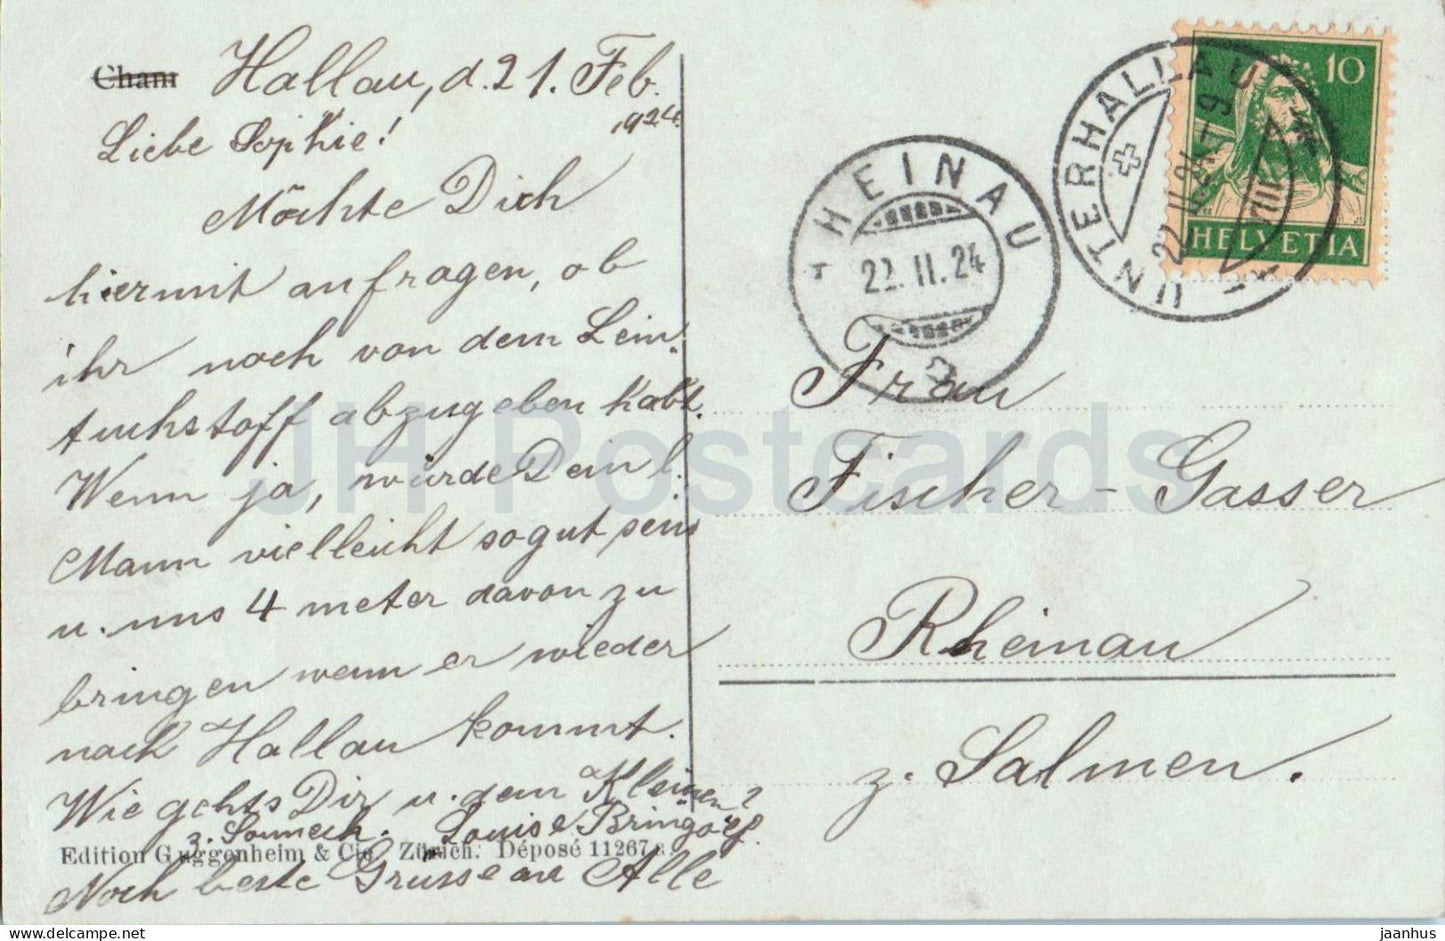 Cham Hallau, d. 21. Feb.
1924.
Liebe Sophie!
Möchte Dich
hiermit anfragen, ob
ihr noch von dem Lein-
tuchstoff abzugeben habt.
Wenn ja, würde Dein l.
Mann vielleicht so gut sein
u. uns 4 meter davon zu
bringen wenn er wieder
nach Hallau kommt.
Wie gehts Dir u. dem Kleinen?
z. Sonneck. Louise Bringolf.
Edition Guggenheim & Cie Zürich. Déposé 11267 a
Noch beste Grüsse an Alle
RHEINAU
22. II. 24
UNTERHALLAU
22. II. 24 - 9
VIII
10
HELVETIA
Frau
Fischer-Gasser
Rheinau
z. Salmen.
JH Postcards
hippostcard.com/store/jh-postcards
jaanhus